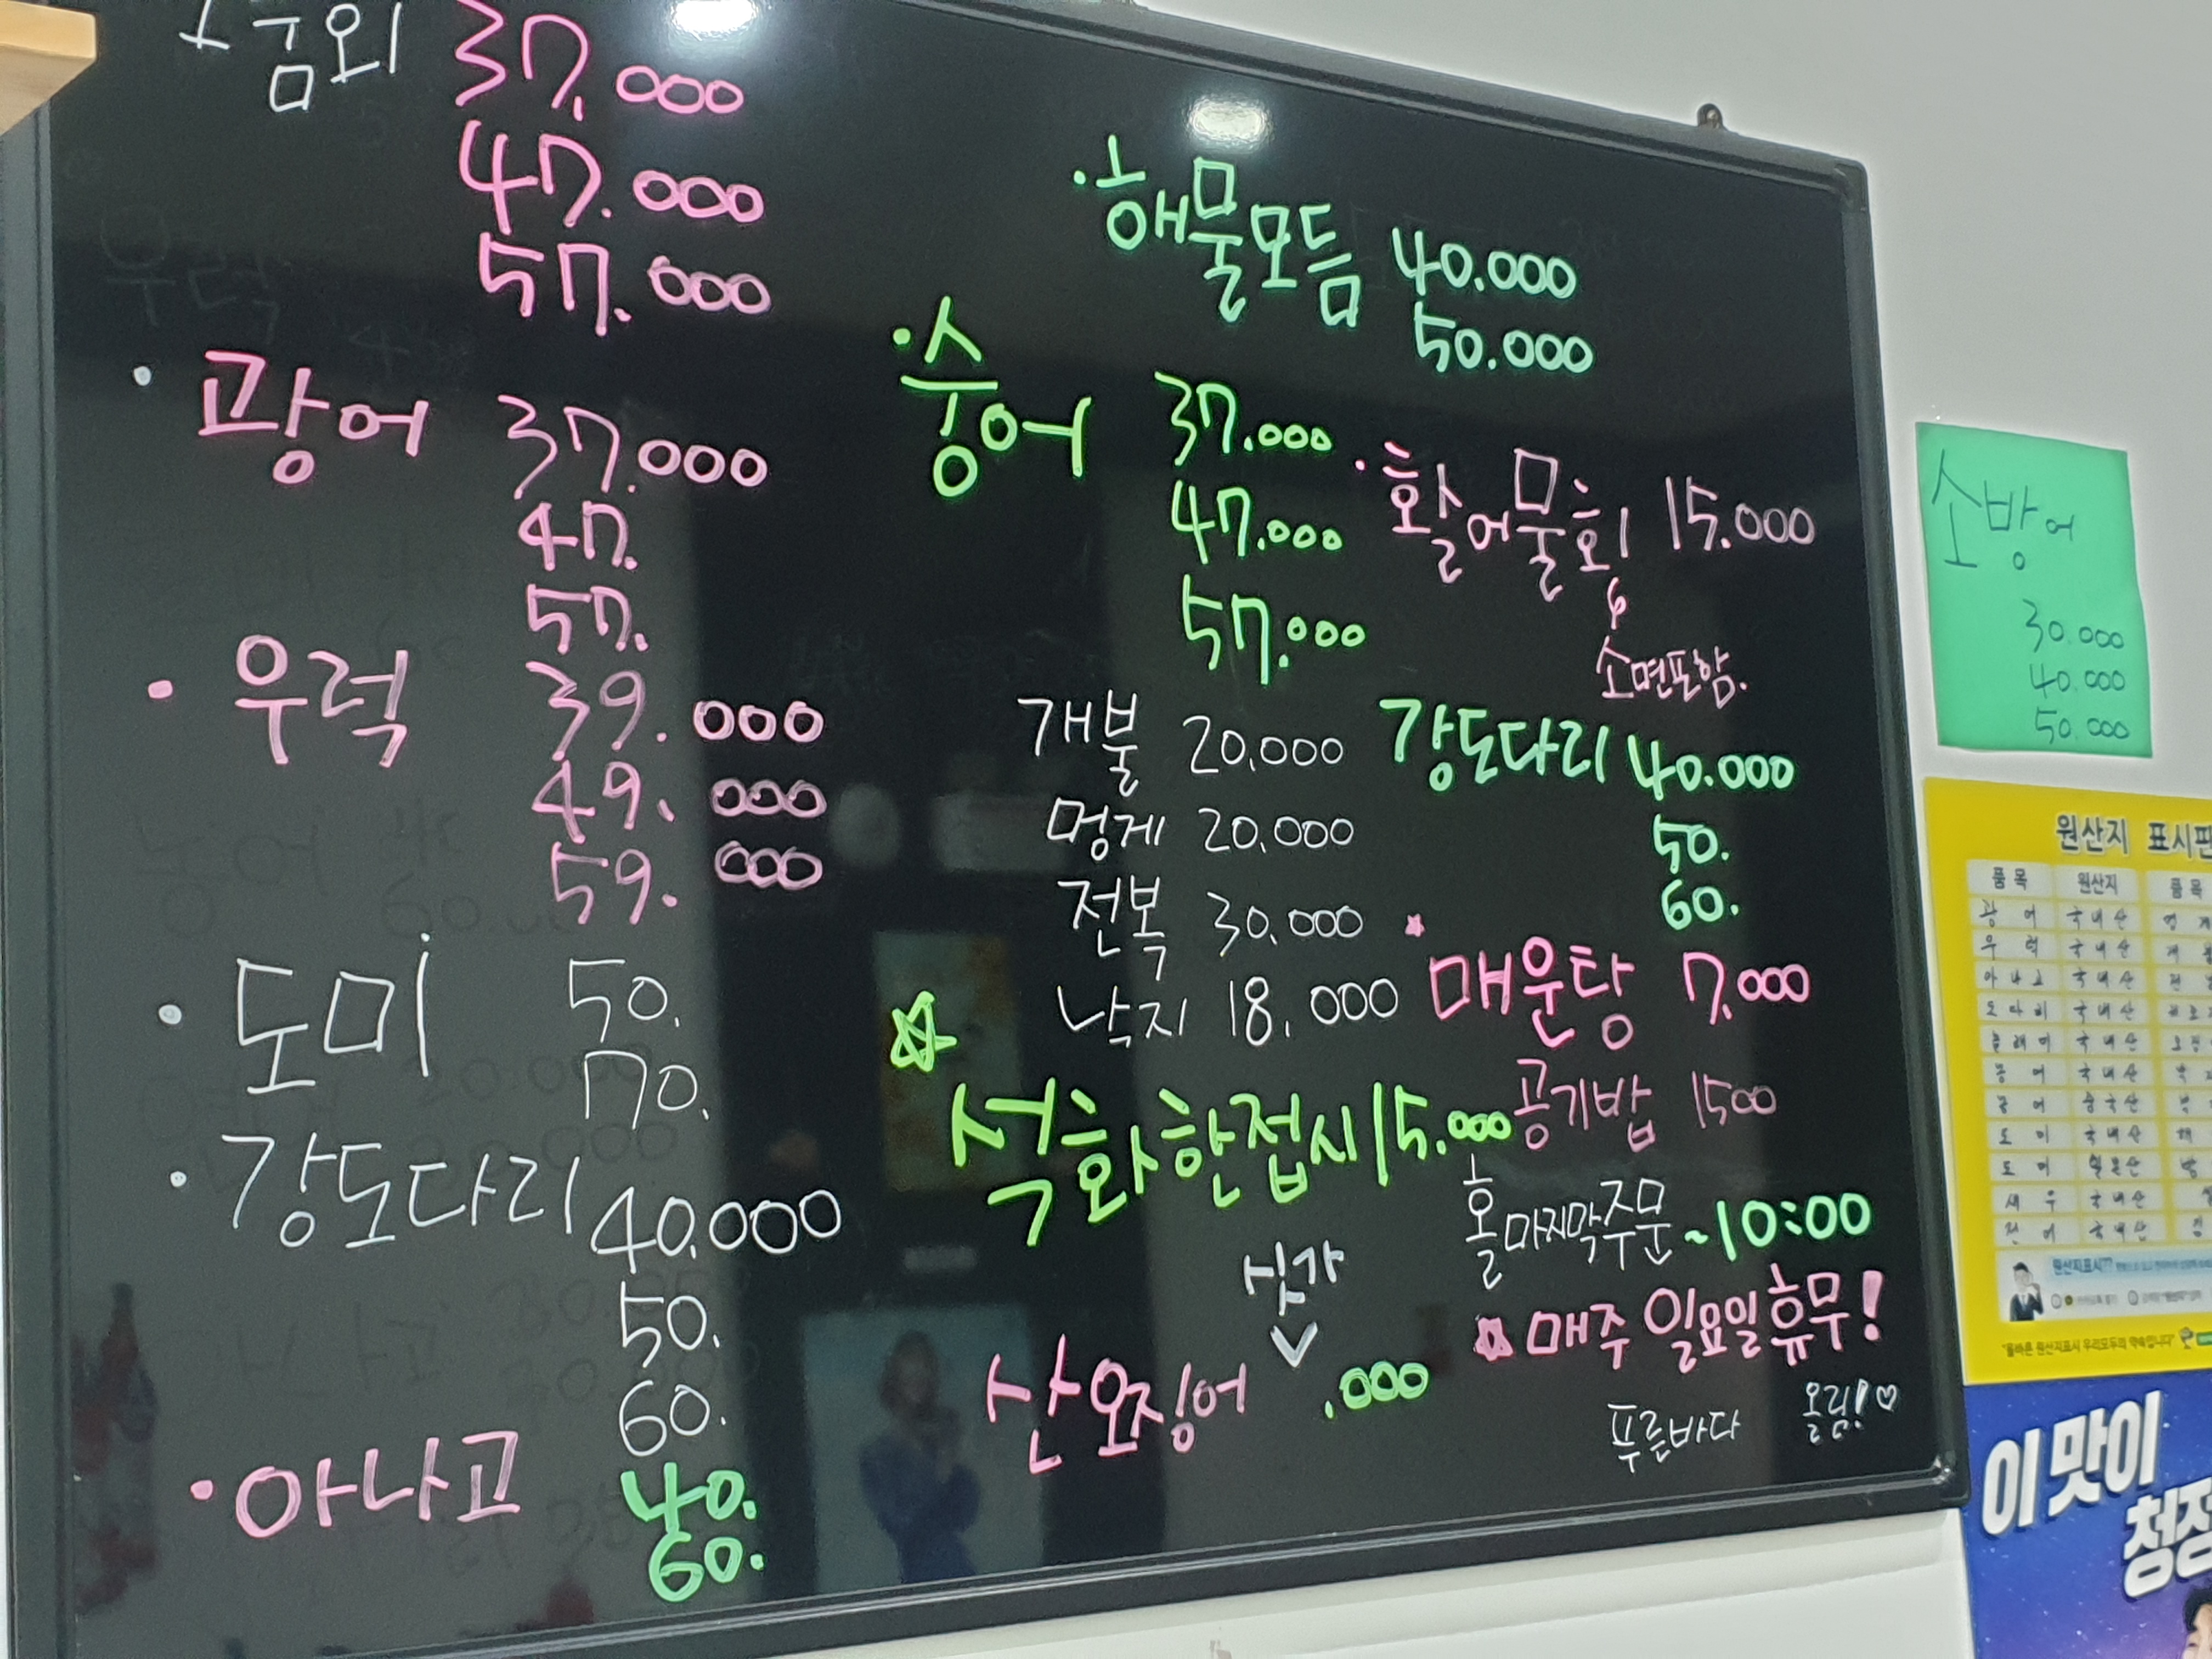 37.000
47.000
57.000
· 광어 37.000
47.
57.
· 우럭 39.000
49.000
59.000
· 도미 50.
70.
· 강도다리 40.000
50.
60.
· 아나고 40.
60.
· 해물모듬 40.000
50.000
· 숭어 37.000
47.000
57.000
· 활어물회 15.000
소면포함.
개불 20,000
멍게 20,000
전복 30,000
낙지 18,000
강도다리 40.000
50.
60.
매운탕 7.000
공기밥 1500
☆ 석화한접시 15.000
싯가
산오징어 .000
홀마지막주문 ~10:00
매주 일요일 휴무!
푸른바다 올림!♡
소방어
30.000
40.000
50.000
원산지 표시판
품목 원산지 품목
광어 국내산 멍게
우럭 국내산
아나고 국내산
도다리 국내산
국내산
국내산
중국산
도미 국내산
도미 일본산
새우 국내산
전어 국내산
"올바른 원산지표시 우리모두의 약속입니다"
이 맛이